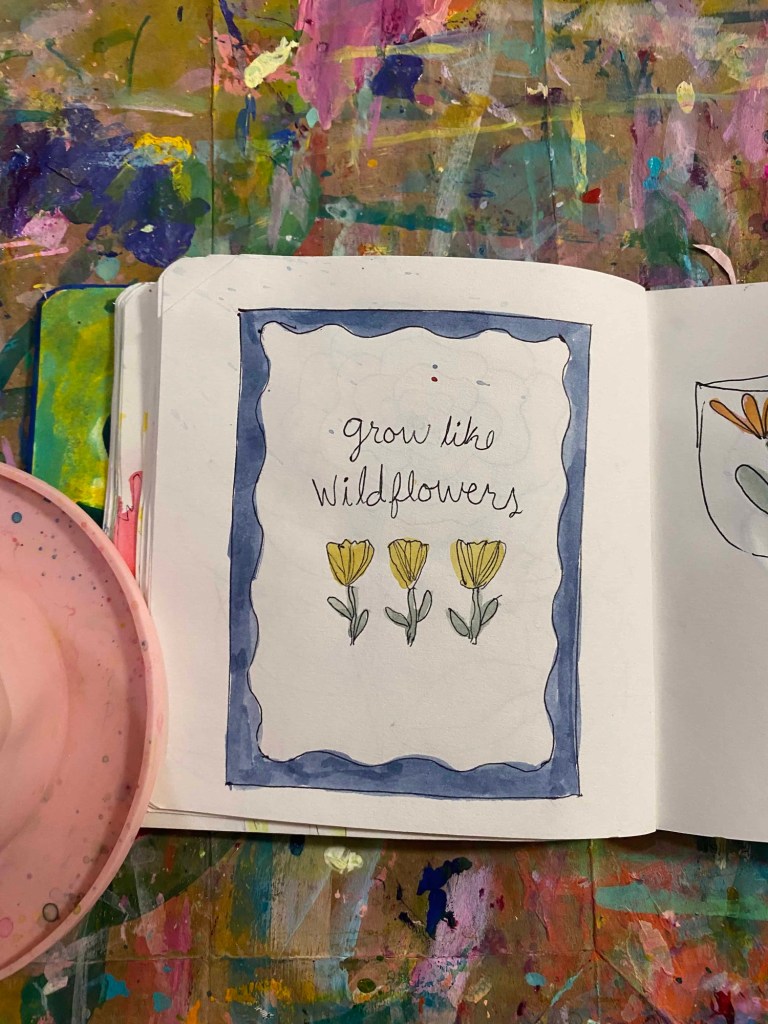 grow like
wildflowers